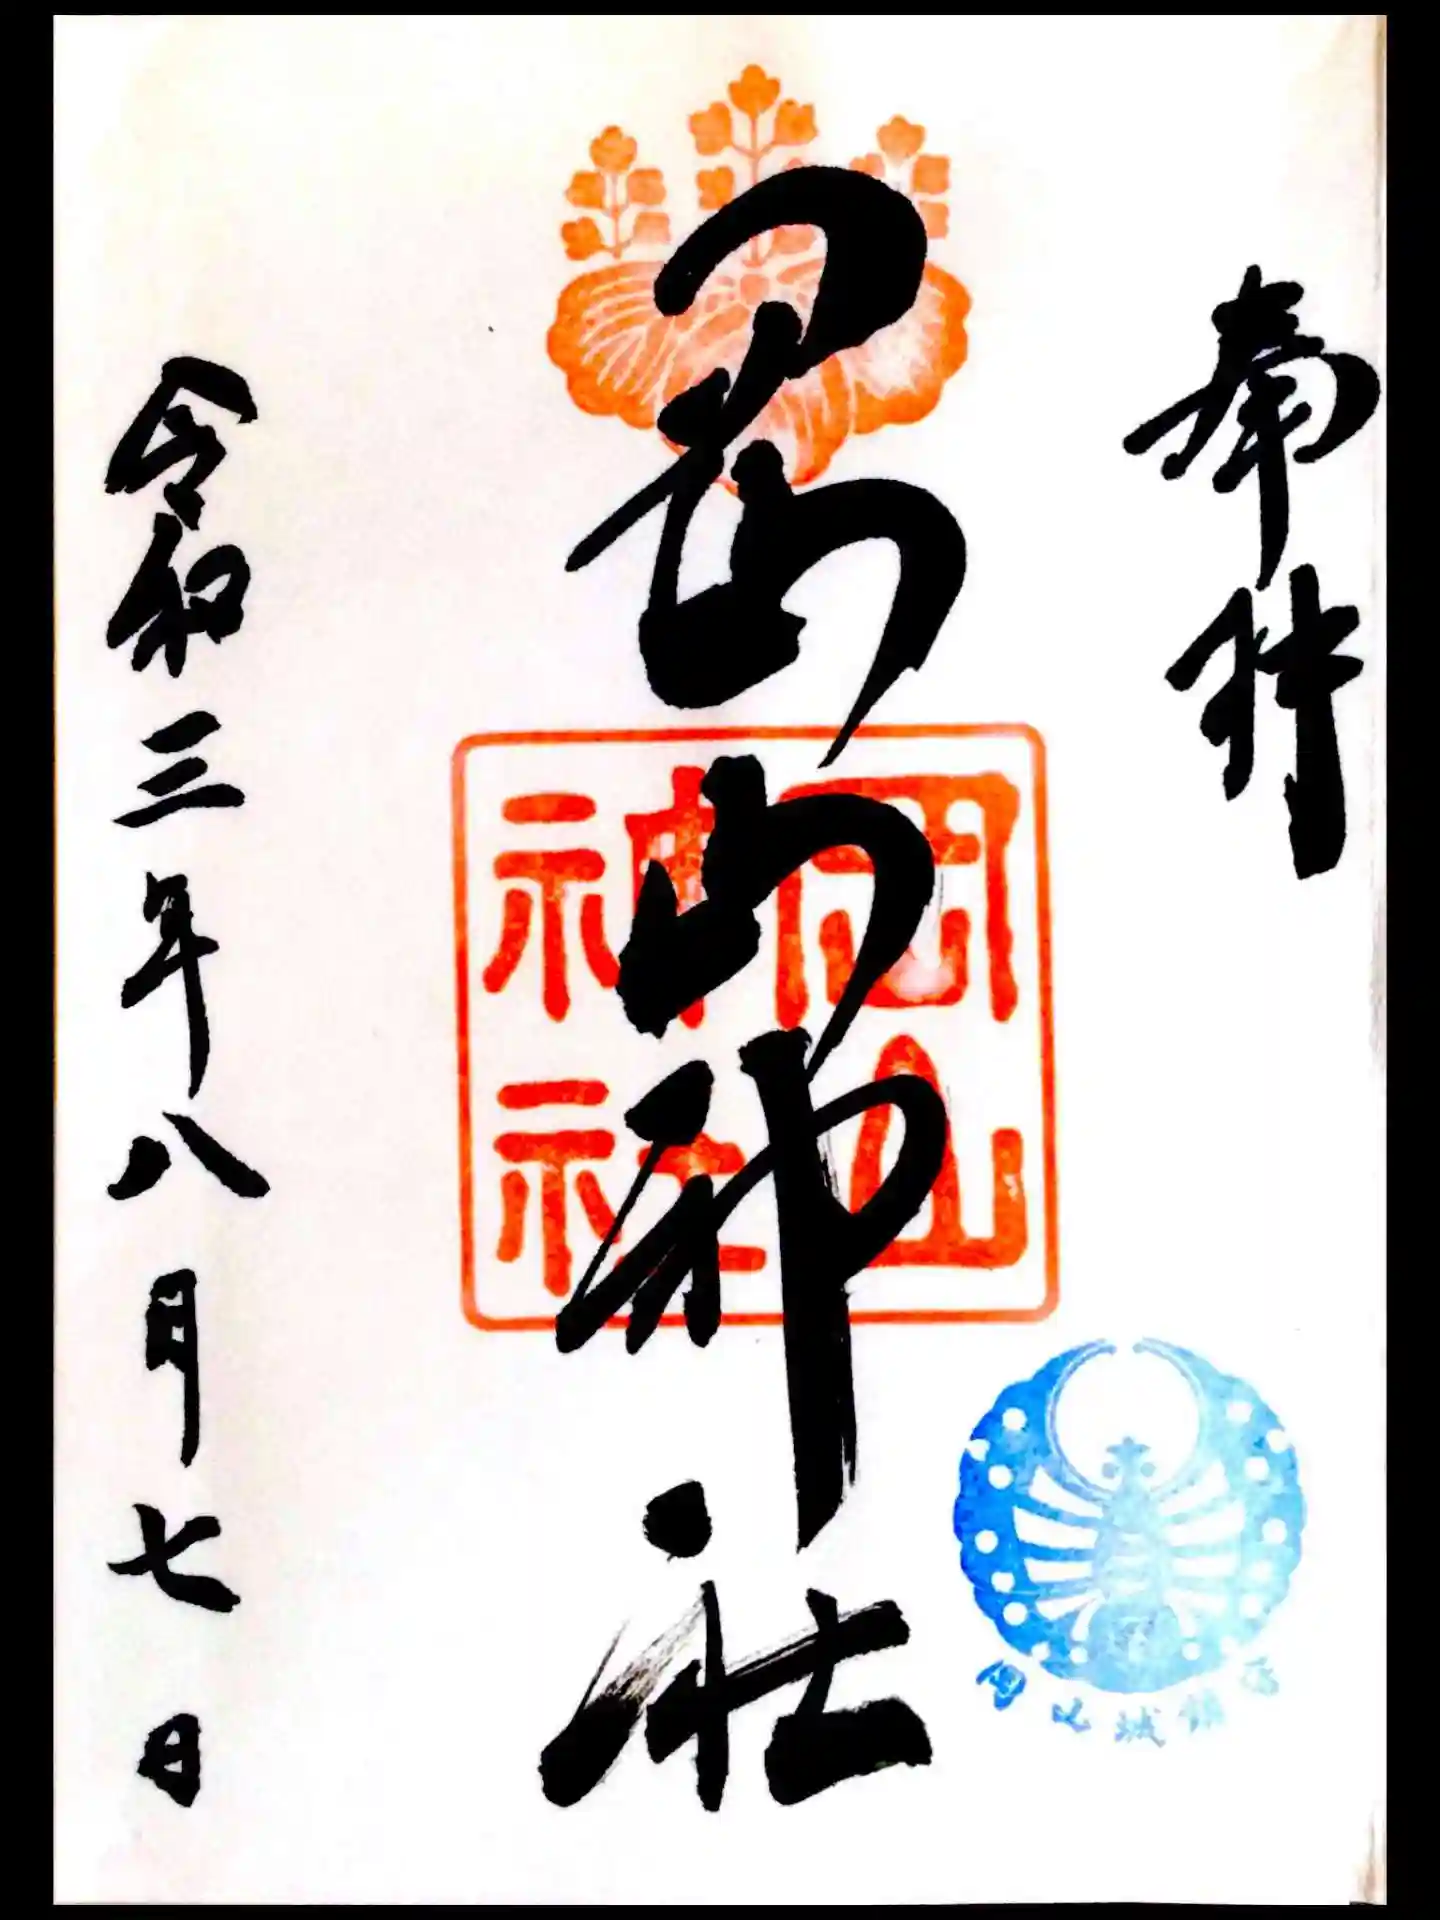 奉拝
岡山神社
岡山
神社
令和三年八月七日
岡山城鎮守